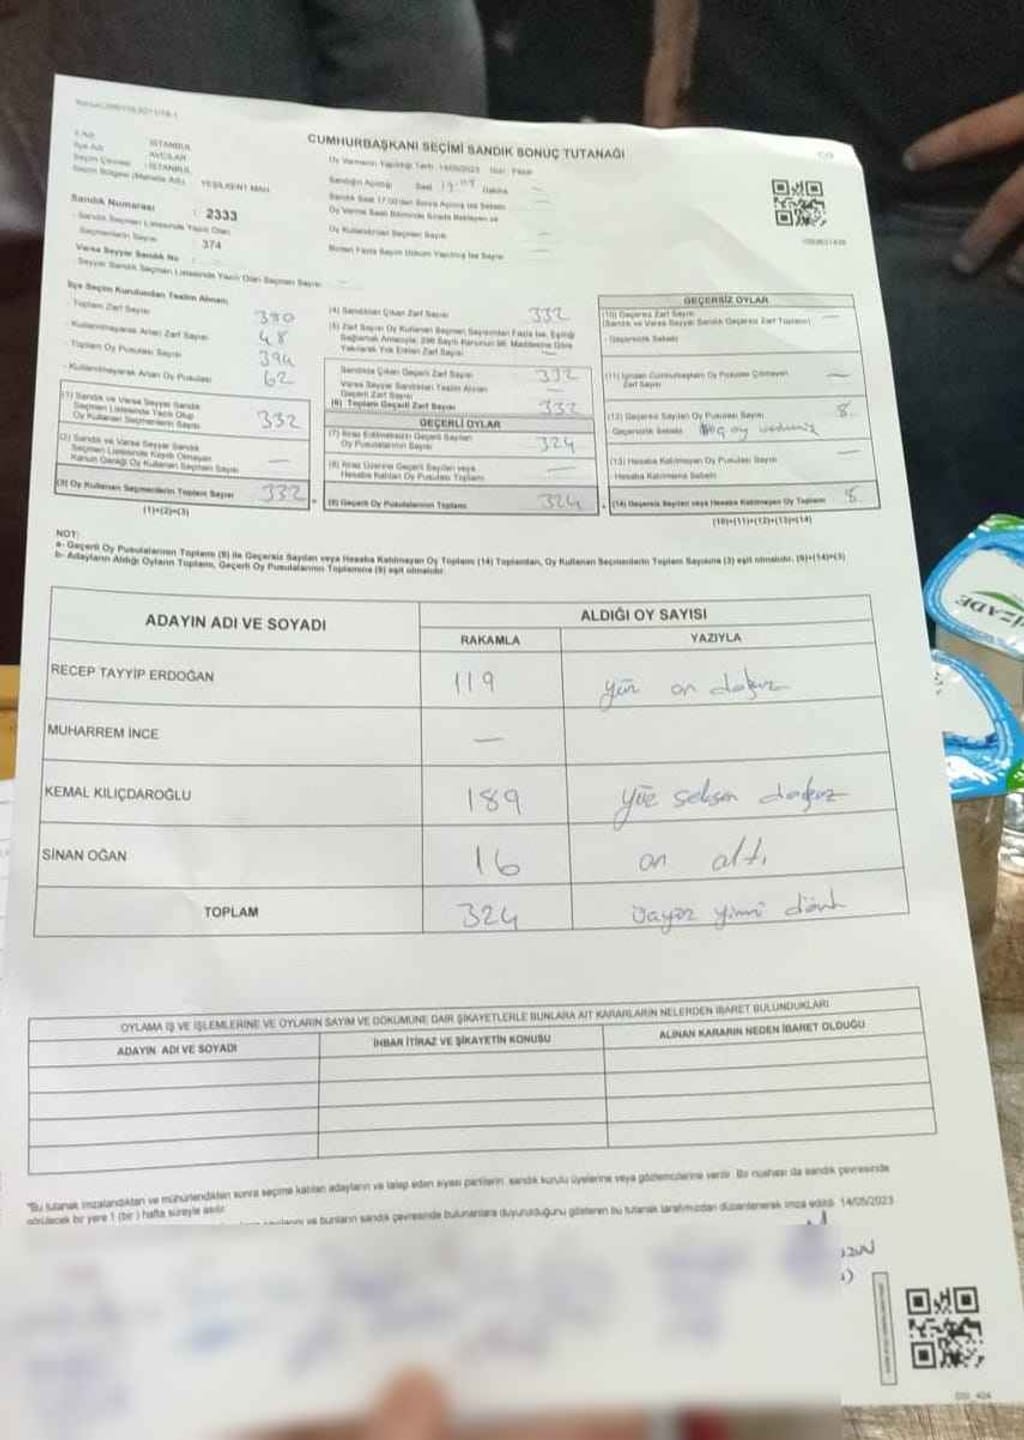 CUMHURBAŞKANI SEÇİMİ SANDIK SONUÇ TUTANAĞI
İSTANBUL
AVCILAR
İSTANBUL
YEŞİLKENT MAH
Oy Vermenin Yapıldığı Tarih : 14/05/2023 Gün : Pazar
Sandığın Açılışı Saat Dakika
Sandık Numarası : 2333
Sandık Seçmen Listesinde Yazılı Olan
Seçmenlerin Sayısı : 374
Varsa Seyyar Sandık No :
Seyyar Sandık Seçmen Listesinde Yazılı Olan Seçmen Sayısı
Oy Kullandırılan Seçmen Sayısı
İlçe Seçim Kurulundan Teslim Alınan;
Toplam Zarf Sayısı 380
Kullanılmayarak Artan Zarf Sayısı 48
Toplam Oy Pusulası Sayısı 394
Kullanılmayarak Artan Oy Pusulası 62
(1) Sandık ve Varsa Seyyar Sandık
Seçmen Listesinde Yazılı Olup
Oy Kullanan Seçmenlerin Sayısı 332
(2) Sandık ve Varsa Seyyar Sandık
Seçmen Listesinde Kayıtlı Olmayan
Kanun Gereği Oy Kullanan Seçmen Sayısı —
(3) Oy Kullanan Seçmenlerin Toplam Sayısı 332
(1)+(2)=(3)
(4) Sandıktan Çıkan Zarf Sayısı 332
Sandıkta Çıkan Geçerli Zarf Sayısı 332
Varsa Seyyar Sandıktan Teslim Alınan
Geçerli Zarf Sayısı —
(6) Toplam Geçerli Zarf Sayısı 332
GEÇERLİ OYLAR
(7) İtiraz Edilmeksizin Geçerli Sayılan
Oy Pusulalarının Sayısı 324
(8) İtiraz Üzerine Geçerli Sayılan veya
Hesaba Katılan Oy Pusulası Toplamı —
(9) Geçerli Oy Pusulalarının Toplamı 324
GEÇERSİZ OYLAR
(10) Geçersiz Zarf Sayısı —
(Sandık ve Varsa Seyyar Sandık Geçersiz Zarf Toplamı)
Geçersizlik Sebebi
Zarf Sayısı —
(12) Geçersiz Sayılan Oy Pusulası Sayısı 8
Geçersizlik Sebebi
(13) Hesaba Katılmayan Oy Pusulası Sayısı —
Hesaba Katılmama Sebebi
(14) Geçersiz Sayılan veya Hesaba Katılmayan Oy Toplamı 8
(10)+(11)+(12)+(13)=(14)
NOT:
a- Geçerli Oy Pusulalarının Toplamı (9) ile Geçersiz Sayılan veya Hesaba Katılmayan Oy Toplamı (14) Toplamları, Oy Kullanan Seçmenlerin Toplam Sayısına (3) eşit olmalıdır. (9)+(14)=(3)
b- Adayların Aldığı Oyların Toplamı, Geçerli Oy Pusulalarının Toplamına (9) eşit olmalıdır.
ADAYIN ADI VE SOYADI
ALDIĞI OY SAYISI
RAKAMLA YAZIYLA
RECEP TAYYİP ERDOĞAN 119 yüz on dokuz
MUHARREM İNCE —
KEMAL KILIÇDAROĞLU 189 yüz seksen dokuz
SİNAN OĞAN 16 on altı
TOPLAM 324 üçyüz yirmi dört
OYLAMA İŞ VE İŞLEMLERİNE VE OYLARIN SAYIM VE DÖKÜMÜNE DAİR ŞİKAYETLERLE BUNLARA AİT KARARLARIN NELERDEN İBARET BULUNDUKLARI
ADAYIN ADI VE SOYADI İHBAR İTİRAZ VE ŞİKAYETİN KONUSU ALINAN KARARIN NEDEN İBARET OLDUĞU
"Bu tutanak imzalandıktan ve mühürlendikten sonra seçime katılan adayların ve talep eden siyasi partilerin, sandık kurulu üyelerine veya gözlemcilerine verilir. Bir nüshası da sandık çevresinde
görülecek bir yere 1 (bir) hafta süreyle asılır.
ve bunların sandık çevresinde bulunanlara duyurulduğunu gösteren bu tutanak tarafımızdan düzenlenerek imza edildi. 14/05/2023